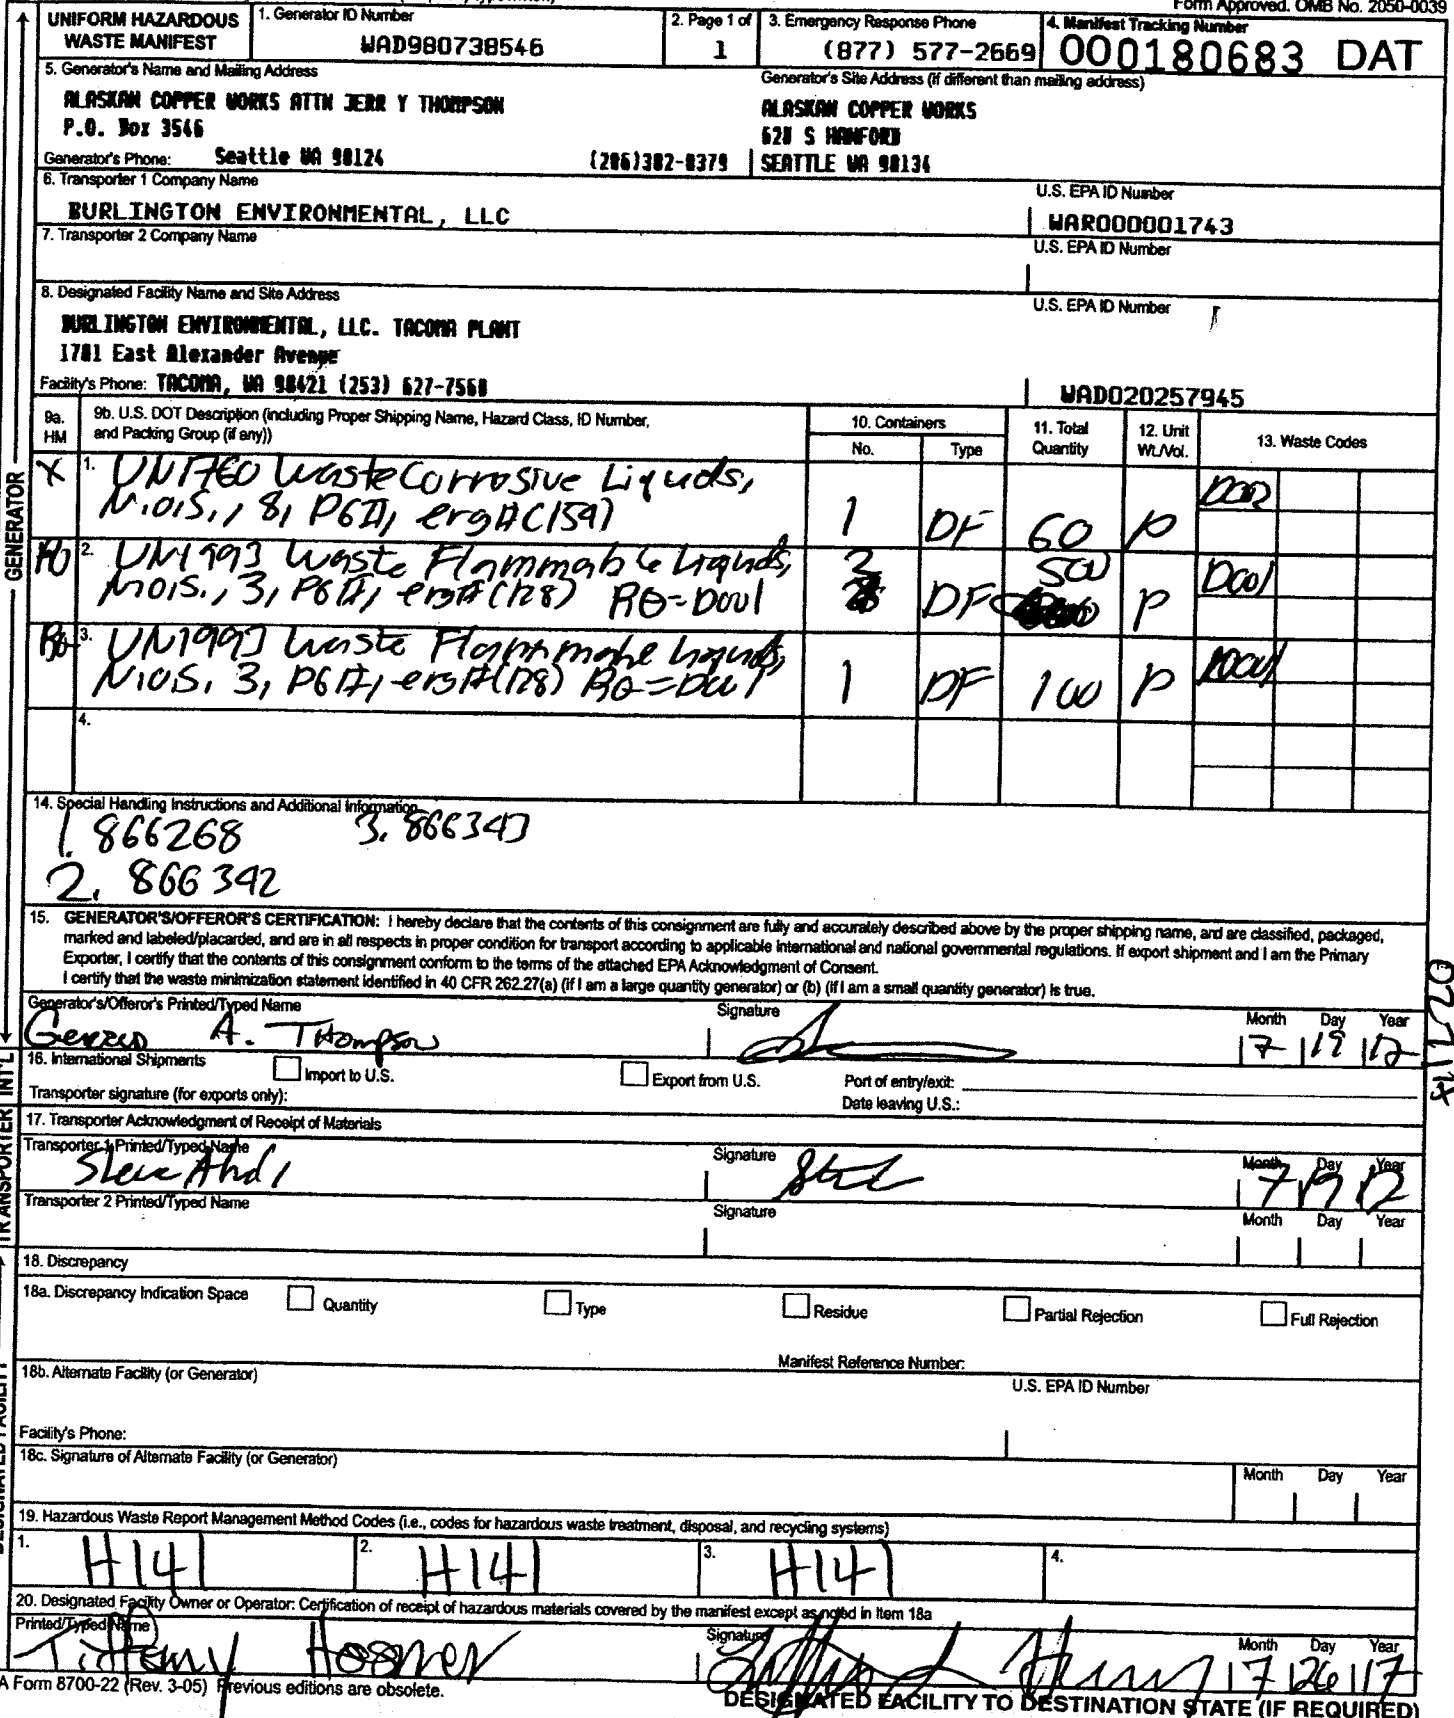 Form Approved. OMB No. 2050-0039
UNIFORM HAZARDOUS WASTE MANIFEST
1. Generator ID Number
WAD980738546
2. Page 1 of
1
3. Emergency Response Phone
(877) 577-2669
4. Manifest Tracking Number
000180683 DAT
5. Generator's Name and Mailing Address
ALASKAN COPPER WORKS ATTN JERR Y THOMPSON
P.O. Box 3546
Generator's Phone: Seattle WA 98124 (206)382-8379
Generator's Site Address (if different than mailing address)
ALASKAN COPPER WORKS
628 S HANFORD
SEATTLE WA 98134
6. Transporter 1 Company Name
BURLINGTON ENVIRONMENTAL, LLC
U.S. EPA ID Number
WAR000001743
7. Transporter 2 Company Name
U.S. EPA ID Number
8. Designated Facility Name and Site Address
BURLINGTON ENVIRONMENTAL, LLC. TACOMA PLANT
1701 East Alexander Avenue
Facility's Phone: TACOMA, WA 98421 (253) 627-7568
U.S. EPA ID Number
WAD020257945
9a. HM
9b. U.S. DOT Description (including Proper Shipping Name, Hazard Class, ID Number, and Packing Group (if any))
10. Containers
No. Type
11. Total Quantity
12. Unit Wt./Vol.
13. Waste Codes
X 1. UN1760 Waste Corrosive Liquids,
N.O.S., 8, PGII, erg#(154) 1 DF 60 P D002
RQ 2. UN1993 Waste Flammable Liquids,
N.O.S., 3, PGII, erg#(128) RQ=D001 3 DF 500 P D001
RQ 3. UN1993 Waste Flammable Liquids,
N.O.S. 3, PGII, erg#(128) RQ=D001 1 DF 100 P D001
4.
14. Special Handling Instructions and Additional Information
1. 866268 3. 866343
2. 866342
15. GENERATOR'S/OFFEROR'S CERTIFICATION: I hereby declare that the contents of this consignment are fully and accurately described above by the proper shipping name, and are classified, packaged,
marked and labeled/placarded, and are in all respects in proper condition for transport according to applicable international and national governmental regulations. If export shipment and I am the Primary
Exporter, I certify that the contents of this consignment conform to the terms of the attached EPA Acknowledgment of Consent.
I certify that the waste minimization statement identified in 40 CFR 262.27(a) (if I am a large quantity generator) or (b) (if I am a small quantity generator) is true.
Generator's/Offeror's Printed/Typed Name
A. Thompson
Signature
Month Day Year
7 19 12
16. International Shipments
Import to U.S.
Export from U.S.
Port of entry/exit:
Transporter signature (for exports only):
Date leaving U.S.:
17. Transporter Acknowledgment of Receipt of Materials
Transporter 1 Printed/Typed Name
Steve
Signature
Month Day Year
7 19 12
Transporter 2 Printed/Typed Name
Signature
Month Day Year
18. Discrepancy
18a. Discrepancy Indication Space
Quantity
Type
Residue
Partial Rejection
Full Rejection
Manifest Reference Number:
18b. Alternate Facility (or Generator)
U.S. EPA ID Number
Facility's Phone:
18c. Signature of Alternate Facility (or Generator)
Month Day Year
19. Hazardous Waste Report Management Method Codes (i.e., codes for hazardous waste treatment, disposal, and recycling systems)
1. H141 2. H141 3. H141 4.
20. Designated Facility Owner or Operator: Certification of receipt of hazardous materials covered by the manifest except as noted in Item 18a
Printed/Typed Name
Tiffany
Signature
Month Day Year
7 26 12
A Form 8700-22 (Rev. 3-05) Previous editions are obsolete.
DESIGNATED FACILITY TO DESTINATION STATE (IF REQUIRED)
GENERATOR
INT'L
TRANSPORTER
DESIGNATED FACILITY